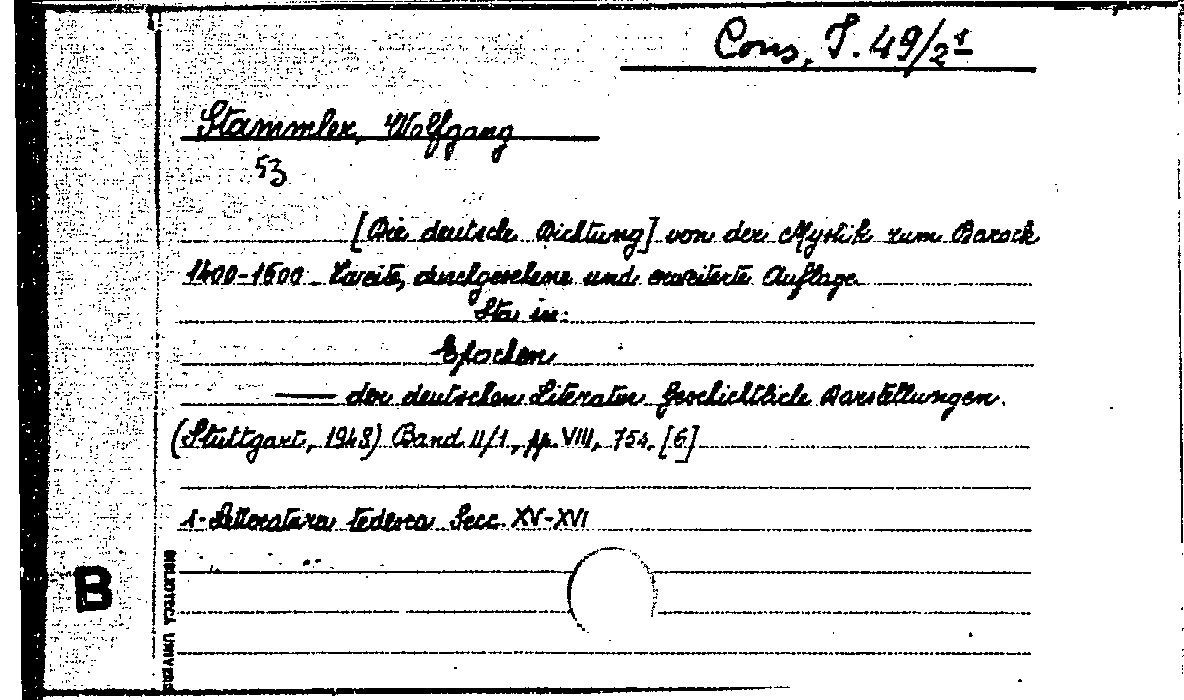 Cons. T. 49/2¹
Stammler, Wolfgang
53
[Die deutsche Dichtung] von der Mystik zum Barock
1400-1600 - Zweite, durchgesehene und erweiterte Auflage
Sta in:
Epochen
—— der deutschen Literatur Geschichtliche Darstellungen.
(Stuttgart, 1948) Band II/1, pp. VIII, 754. [6]
1- Letteratura tedesca Secc. XV-XVI
B
BIBLIOTECA UNIVERS